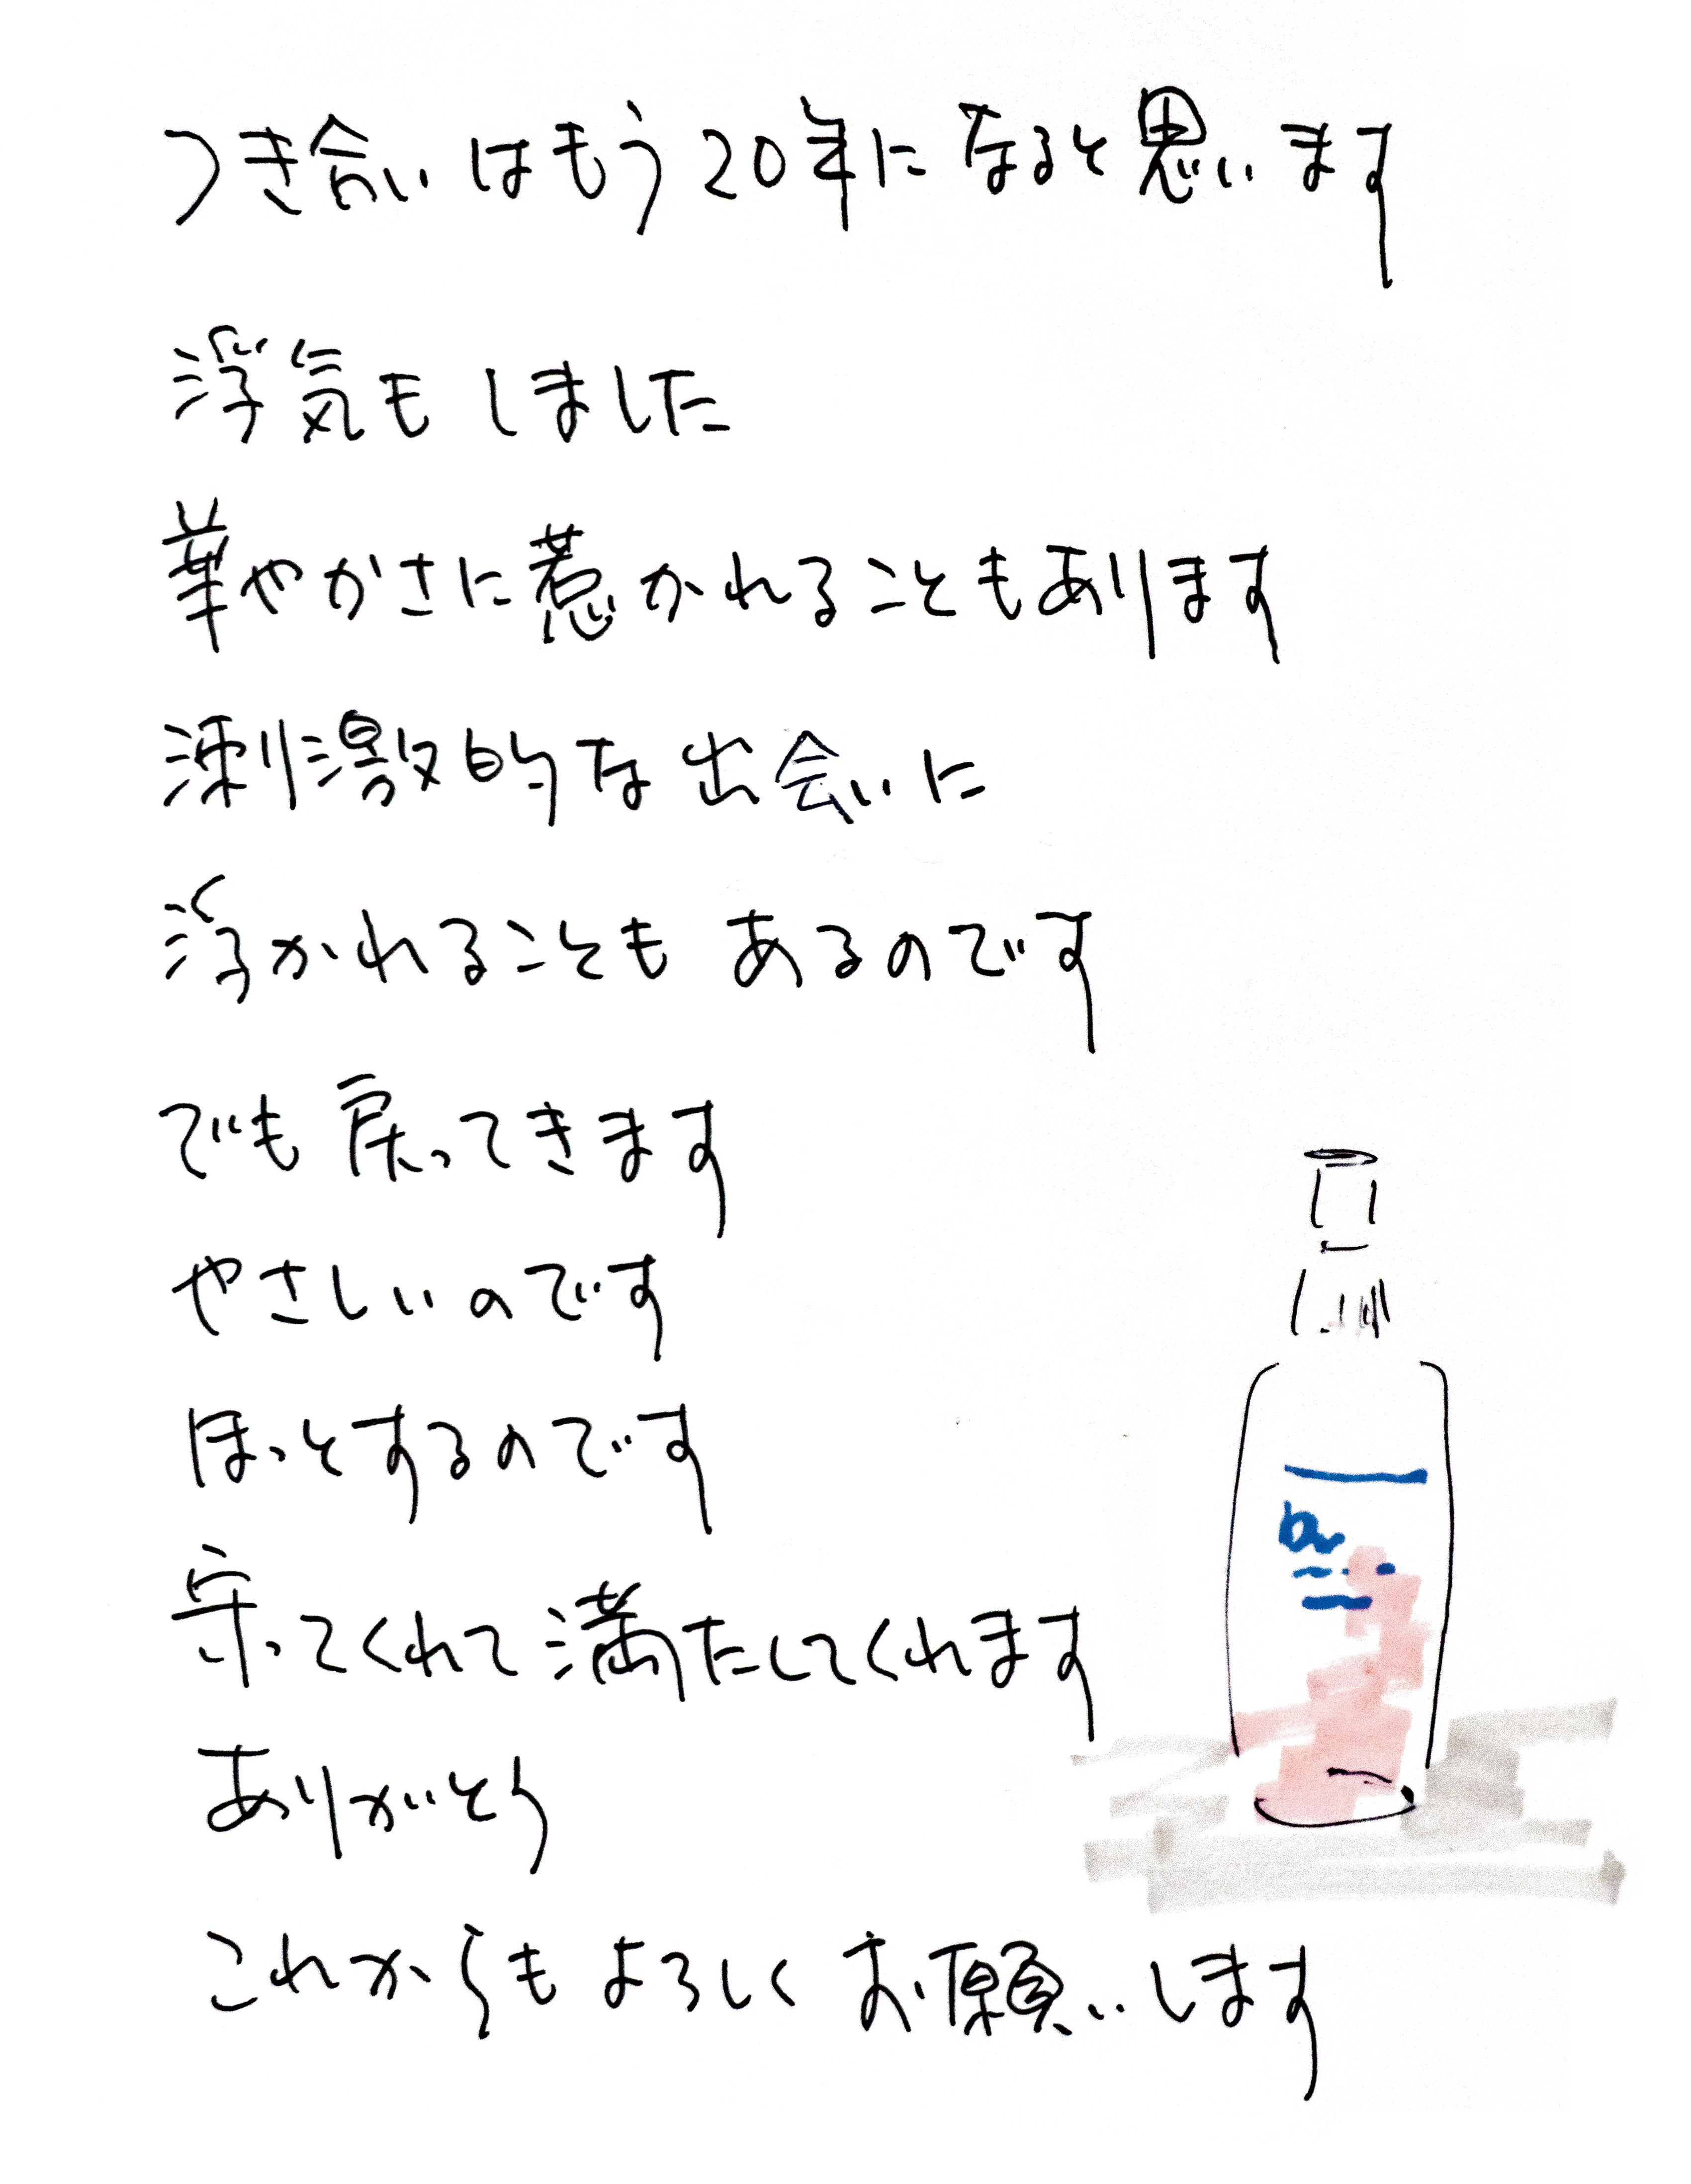 つき合いはもう20年になると思います
浮気もしました
華やかさに惹かれることもあります
刺激的な出会いに
浮かれることもあるのです
でも戻ってきます
やさしいのです
ほっとするのです
守ってくれて満たしてくれます
ありがとう
これからもよろしくお願いします